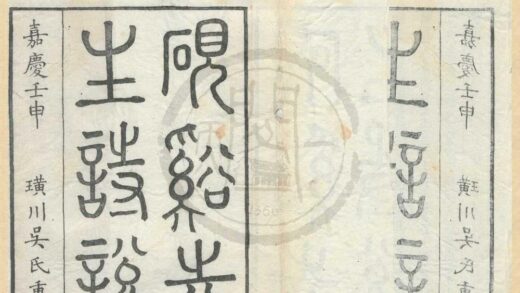 嘉慶壬申 璜川吳氏重
生詩說
硯谿先
生詩說
嘉慶壬申 璜川吳氏重